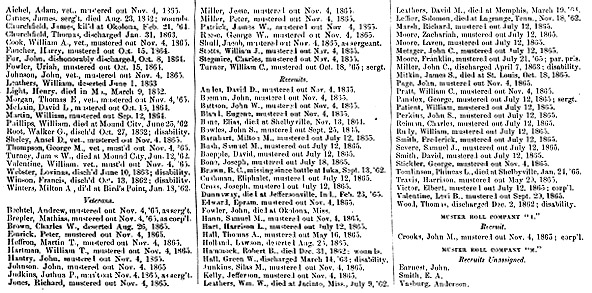 Aichel, Adam, vet., mustered out Nov. 4, 1865.
Caruse, James, sergt., died Aug. 23, 1862; wounds.
Churchfield, James, kill'd at Okolona, Feb. 21, '64.
Churchfield, Thomas, discharged Jan. 31, 1863.
Cook, William A., vet., mustered out Nov. 4, 1865.
Fancher, Larry, mustered out Oct. 15, 1864.
Fur, John, dishonorably discharged, Oct. 8, 1864.
Fowler, Uriah, mustered out Oct. 18, 1865.
Johnson, John, vet., mustered out Nov. 4, 1865.
Leathers, William, deserted June 1, 1863.
Light, Henry, died in M, March 9, 1862.
Morgan, Thomas E., vet., mustered out Nov. 4, '65.
McLain, David L., mustered out Oct. 15, 1864.
Martin, William, mustered out Sep. 12, 1864.
Phillips, William, died at Mound City, June 25, '62
Root, Walker G., disch'd Oct. 27, 1862; disability.
Sheley, Ansel D., vet., mustered out Nov. 4, 1865.
Thompson, George M., vet., must'd out Nov. 4, '65.
Turney, James W., died at Mound City, Jun. 12, '62.
Valentine, William, vet., must'd out Nov. 4, 1865.
Webster, Lovinus, disch'd June 10, 1863; disability.
Winson, Francis, disch'd Oct. 13, 1862; disability.
Winters, Milton A., died at Bird's Point, Jan. 18, '62.
Veterans.
Bechtel, Andrew, mustered out Nov. 4, '65, as serg't.
Bregler, Mathias, mustered out Nov. 4, '65, as corp'l.
Brown, Charles W., deserted Aug. 25, 1865.
Emrick, Peter, mustered out Nov. 4, 1865.
Heffron, Martin T., mustered out Nov. 4, 1865.
Hartman, William T., mustered out Nov. 4, 1865.
Hantry, John, mustered out Nov. 4, 1865.
Johnson, John, mustered out Nov. 4, 1865.
Judkins, Joshua P., must'd out Nov. 4, 1865, as serg't.
Jones, Richard, mustered out Nov. 4, 1865.
Miller, Jesse, mustered out Nov. 4, 1865.
Miller, Peter, mustered out Nov. 4, 1865.
Parman, James W., mustered out Nov. 4, 1865.
Reese, George W., mustered out Nov. 4, 1865.
Shull, Jacob, mustered out Nov. 4, 1865, as sergeant.
Stotts, William J., mustered out Nov. 4, 1865.
Stegmire, Charles, mustered out Nov. 4, 1865.
Turner, William C., mustered out Oct. 18, '65; sergt.
Recruits.
Andes, David D., mustered out Nov. 4, 1865.
Beeman, John, mustered out Nov. 4, 1865.
Button, John W., mustered out Nov. 4, 1865.
Blard, Eugene, mustered out Nov. 4, 1865.
Bane, Elias, died at Shelbyville, Nov. 12, 1864.
Bowles, John S., mustered out Sept. 25, 1865.
Barnhart, Milton M., mustered out July 12, 1865.
Bush, Samuel M., mustered out July 12, 1865.
Baepple, David, mustered out July 12, 1865.
Bonn, Joseph, mustered out July 18, 1865.
Brown, R. C., missing since battle at Iuka, Sept. 13, '62.
Cushman, Eliphalet, mustered out July 12, 1865.
Cross, Joseph, mustered out July 12, 1865.
Dunnaway, died at Jeffersonville, Ind., Feb. 23, '65.
Edward, Epram, mustered out Nov. 4, 1865.
Fowler, John, died at Okolona, Miss.
Hann, Samuel M., mustered out Nov. 4, 1865.
Hart, Harrison, mustered out July 12, 1865.
Hall, Thomas A., mustered out May 16, 1865.
Holland, Lawson, deserted Aug. 25, 1865.
Hammock, Robert B., died Dec. 31, 1862; wounds.
Hall, Green W., discharged March 14, '63; disability.
Junkins, Silas M., mustered out Nov. 4, 1865.
Kelly, Jefferson, mustered out Nov. 4, 1865.
Leathers, Wm. W., died at Jacinto, Miss., July 9, '62.
Leathers, David M., died at Memphis, March 19, '64.
Lefler, Solomon, died at Lagrange, Tenn., Nov. 18, '62.
Marsh, Richard, mustered out July 12, 1865.
Moore, Zachariah, mustered out July 12, 1865.
Moore, Laven, mustered out July 12, 1865.
Metzger, John C., mustered out July 12, 1865.
Moore, Franklin, mustered out July 21, '65; par. pris.
Miller, John C., discharged April 7, 1863; disability.
Mitkin, James S., died at St. Louis, Oct. 18, 1865.
Page, John, mustered out Nov. 4, 1865.
Pratt, William C., mustered out Nov. 4, 1865.
Pander, George, mustered out July 12, 1865; sergt.
Patient, William, mustered out July 12, 1865.
Perkins, John S., mustered out July 12, 1865.
Reimm, Charles, mustered out July 12, 1865.
Rully, William, mustered out July 12, 1865.
Smith, Frederick, mustered out July 12, 1865.
Severe, Samuel J., mustered out July 12, 1865.
Smith, David, mustered out July 12, 1865.
Stickler, George, mustered out Nov. 4, 1865.
Tomlinson, Phineas L., died at Shelbyville, Jan. 21, '65.
Travis, Harrison, mustered out May 23, 1865.
Victor, Elbert, mustered out July 12, 1865; corp'l.
Valentine, Levi B., mustered out Sept. 23, 1865.
Wood, Thomas, discharged Dec. 2, 1862; disability.
MUSTER ROLL COMPANY "I."
Recruit.
Crooks, John M., mustered out Nov. 4, 1865; corp'l.
MUSTER ROLL COMPANY "M."
Recruits Unassigned.
Earnest, John.
Smith, E. A.
Vasburg, Anderson.